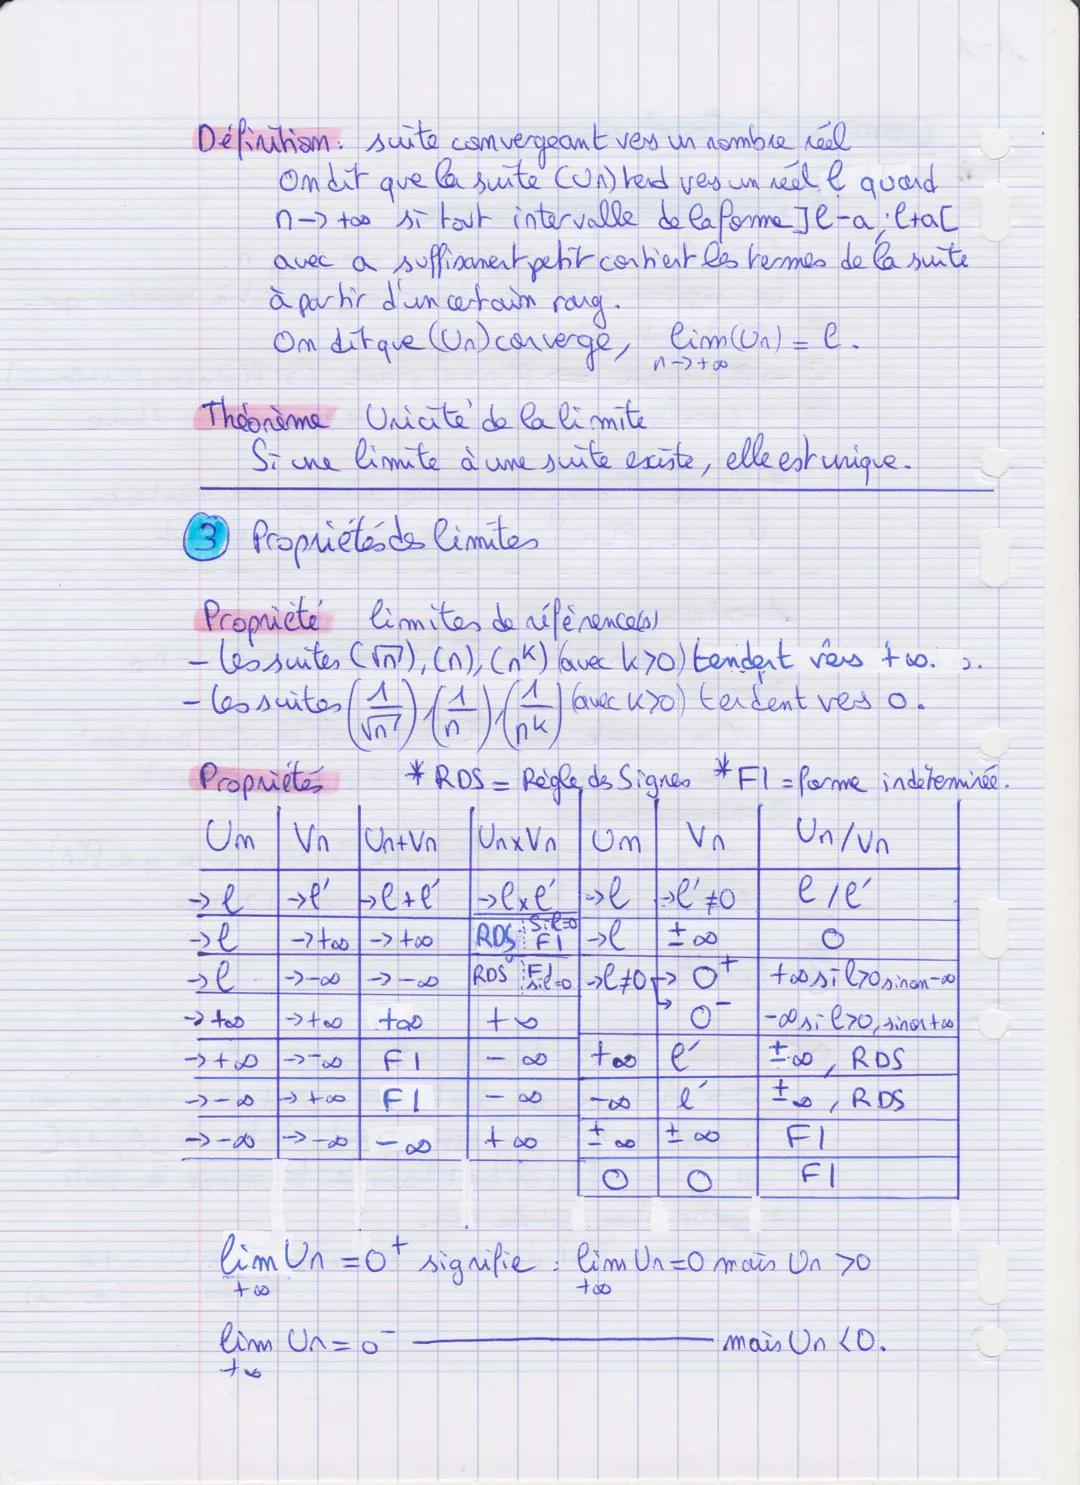 Définition : suite convergeant vers un nombre réel
On dit que la suite (Un) tend vers un réel l quand
n→+∞ si tout intervalle de la forme ]l-a ; l+a[
avec a suffisament petit contient les termes de la suite
à partir d'un certain rang.
On dit que (Un) converge, lim(Un) = l.
n→+∞
Théorème Unicité de la limite
Si une limite à une suite existe, elle est unique.
3 Propriétés des limites
Propriété limites de référence(s)
- les suites (√n), (n), (n^k) (avec k>0) tendent vers +∞.
- les suites (1/√n), (1/n), (1/n^k) (avec k>0) tendent vers 0.
Propriétés * RDS = Règle des Signes * FI = forme indéterminée.
Un Vn Un+Vn Un×Vn Un Vn Un/Vn
→l →l' →l+l' →l×l' →l →l'≠0 l/l'
→l →+∞ →+∞ RDS si l=0 FI →l ±∞ 0
→l →-∞ →-∞ RDS FI si l=0 →l≠0 → 0⁺ +∞ si l>0 sinon -∞
→+∞ →+∞ +∞ +∞ → 0⁻ -∞ si l>0, sinon +∞
→+∞ →-∞ FI -∞ +∞ l' ±∞, RDS
→-∞ →+∞ FI -∞ -∞ l' ±∞, RDS
→-∞ →-∞ -∞ +∞ ±∞ ±∞ FI
0 0 FI
lim Un = 0⁺ signifie : lim Un = 0 mais Un > 0
+∞ +∞
lim Un = 0⁻ ——— mais Un < 0.
+∞